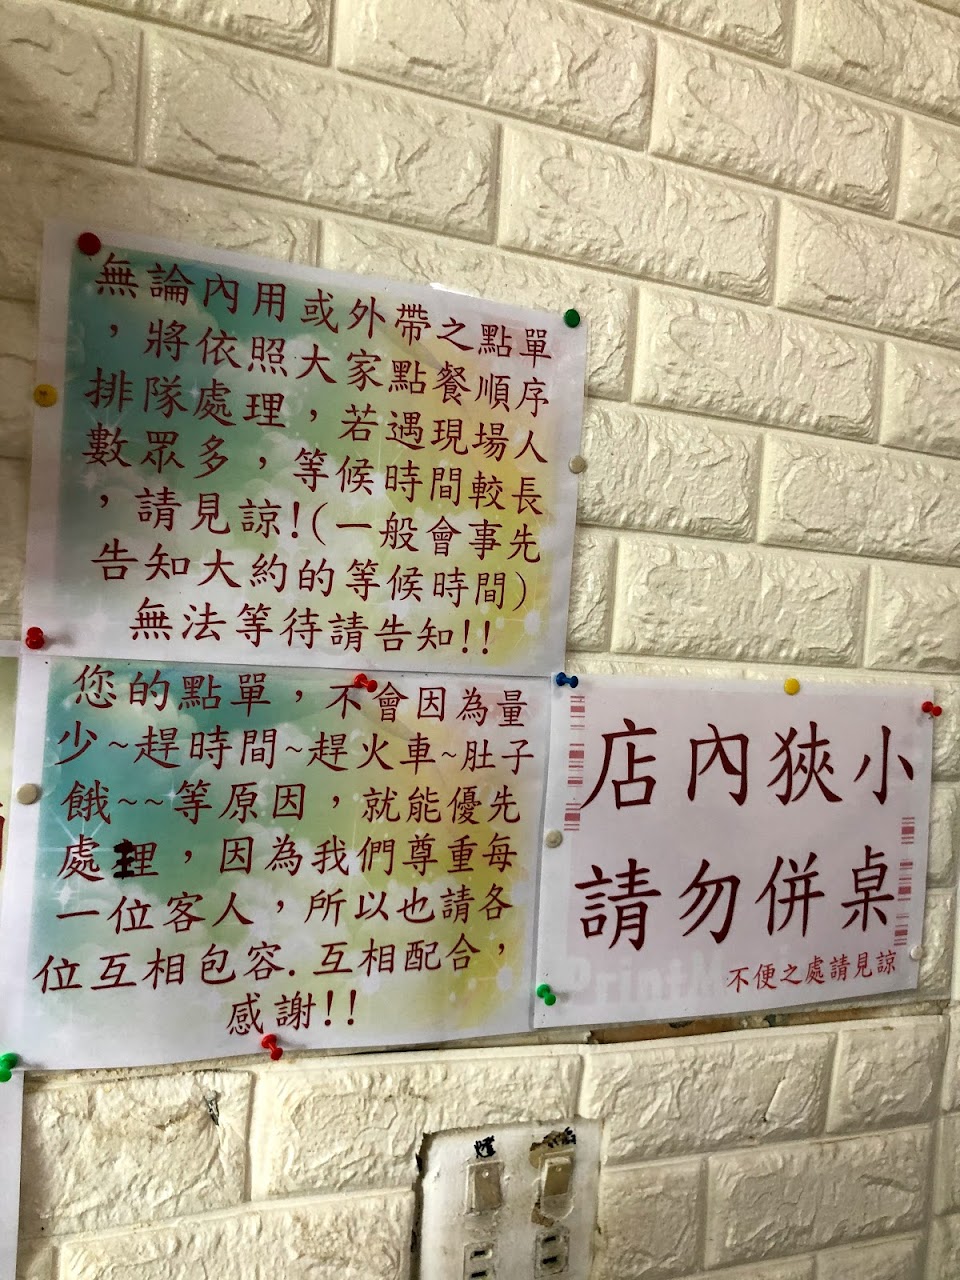 無論內用或外帶之點單
，將依照大家點餐順序
排隊處理，若遇現場人
數眾多，等候時間較長
，請見諒!(一般會事先
告知大約的等候時間)
無法等待請告知!!
您的點單，不會因為量
少~趕時間~趕火車~肚子
餓~~等原因，就能優先
處理，因為我們尊重每
一位客人，所以也請各
位互相包容.互相配合，
感謝!!
店內狹小
請勿併桌
不便之處請見諒